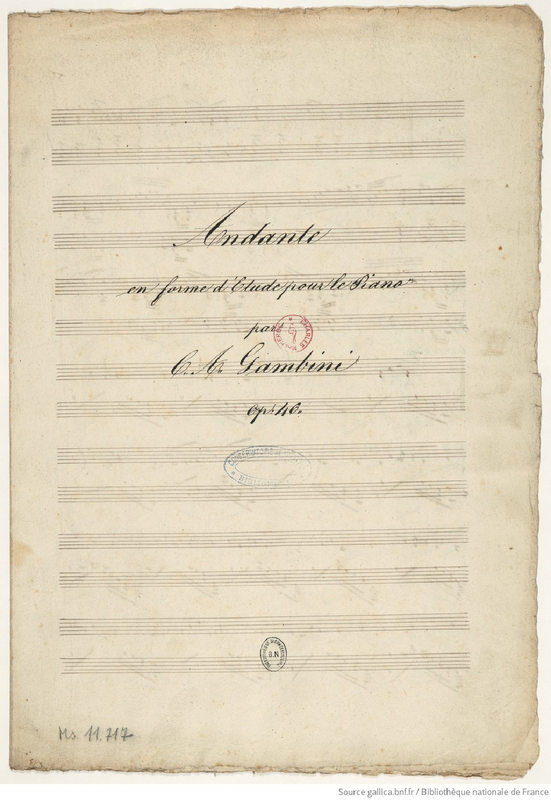 Andante
en forme d'Etude pour le Piano
par
C. A. Gambini
Op: 46.
CHARLES MALHERBE
CONSERVATOIRE DE
B.N
Ms. 11.717
Source gallica.bnf.fr / Bibliothèque nationale de France